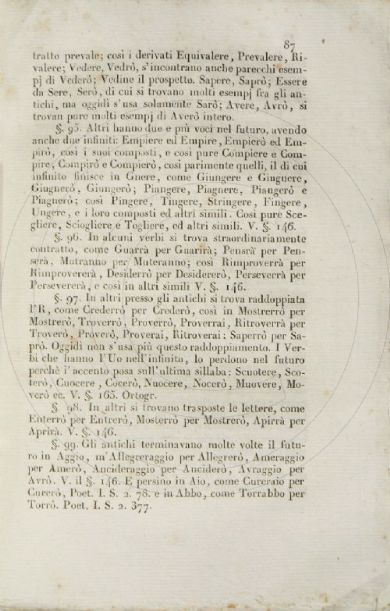 87
tratto prevale; così i derivati Equivalere, Prevalere, Ri-
valere; Vedere, Vedrò, s'incontrano anche parecchi esem-
pj di Vederò; Vedine il prospetto. Sapere, Saprò; Essere
da Sere, Serò, di cui si trovano molti esempj fra gli an-
tichi, ma oggidì s'usa solamente Sarò; Avere, Avrò, si
trovan pure molti esempj di Averò intero.
§. 95. Altri hanno due e più voci nel futuro, avendo
anche due infiniti: Empiere ed Empire, Empierò ed Em-
pirò, così i suoi composti, e così pure Compiere e Com-
pire; Compirò e Compierò, così parimente quelli, il di cui
infinito finisce in Gnere, come Giungere e Giugnere,
Giugnerò, Giungerò; Piangere, Piagnere, Piangerò e
Piagnerò; così Pingere, Tingere, Stringere, Fingere,
Ungere, e i loro composti ed altri simili. Così pure Sce-
gliere, Sciogliere e Togliere, ed altri simili. V. §. 146.
§. 96. In alcuni verbi si trova straordinariamente
contratto, come Guarrà per Guarirà; Pensrà per Pen-
serà, Mutranno per Muteranno; così Rimproverrà per
Rimprovererà, Desiderrò per Desidererò, Perseverrà per
Persevererà, e così in altri simili V. §. 146.
§. 97. In altri presso gli antichi si trova raddoppiata
l'R, come Crederrò per Crederò, così in Mostrerrò per
Mostrerò, Troverrò, Proverrò, Proverrai, Ritroverrà per
Troverò, Proverò, Proverai, Ritroverai: Saperrò per Sa-
prò. Oggidì non s'usa più questo raddoppiamento. I Ver-
bi che hanno l'Uo nell'infinito, lo perdono nel futuro
perchè l'accento posa sull'ultima sillaba: Scuotere, Sco-
terò, Cuocere, Cocerò, Nuocere, Nocerò, Muovere, Mo-
verò ec. V. §. 165. Ortogr.
§. 98. In altri si trovano trasposte le lettere, come
Enterrò per Entrerò, Mosterrò per Mostrerò, Apirrà per
Aprirà. V. §. 146.
§. 99. Gli antichi terminavano molte volte il futu-
ro in Aggio, m'Allegreraggio per Allegrerò, Ameraggio
per Amerò, Ancideraggio per Anciderò, Avraggio per
Avrò. V. il §. 146. E persino in Aio, come Cureraio per
Curerò, Poet. I. S. 2. 78. e in Abbo, come Torrabbo per
Torrò. Poet. I. S. 2. 377.